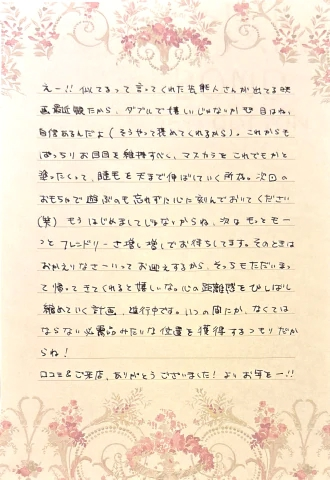 えー!! 似てるって言ってくれた芸能人さんが出てる映
画最近観たから、ダブルで嬉しいじゃないか 目はね、
自信あるんだよ(そうやって褒めてくれるから)。これからも
ぱっちりお目目を維持すべく、マスカラをこれでもかと
塗ったくって、睫毛を天まで伸ばしていく所存。次回の
おもちゃで遊ぶのも忘れずに心に刻んでおいてください
(笑) もうはじめましてじゃないからね、次はもっともー
っとフレンドリーさ増し増しでお待ちしてます。そのときは
おかえりなさーいってお迎えするから、そっちもただいまっ
て帰ってきてくれると嬉しいな。心の距離感をびしばし
縮めていく計画、進行中です。いつの間にか、なくては
ならない必需品みたいな位置を獲得するつもりだか
らね!
口コミ&ご来店、ありがとうございました! よいお年をー!!